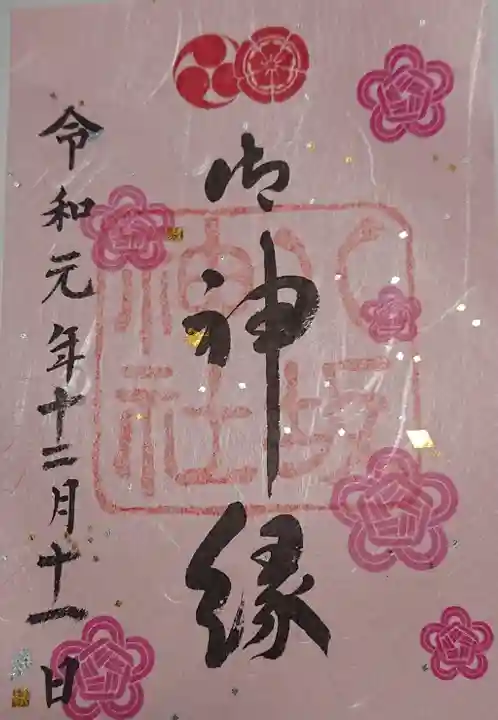 御神縁
令和元年十二月十一日
八坂神社